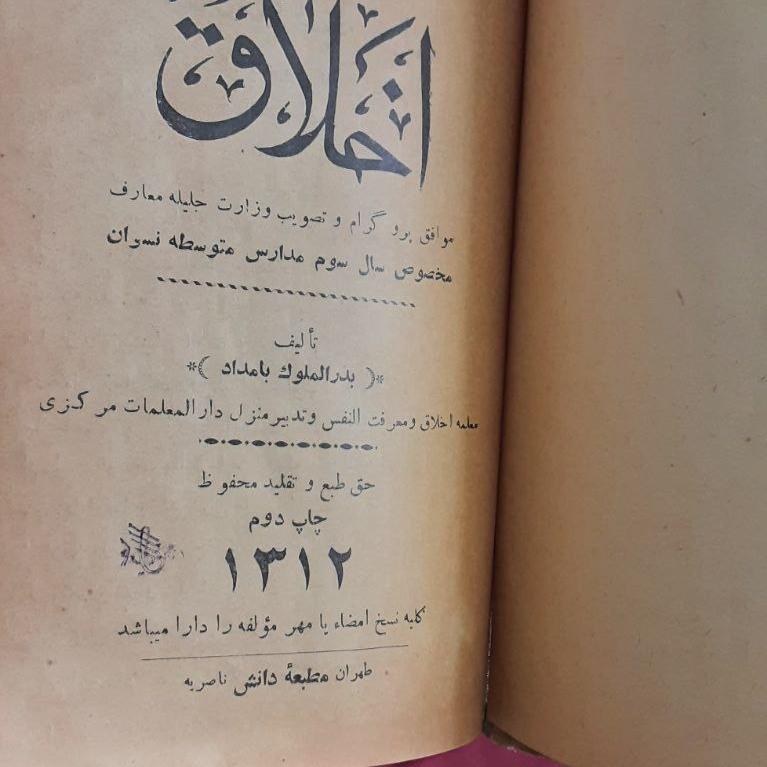 اخلاق
موافق پروگرام و تصویب وزارت جلیله معارف
مخصوص سال سوم مدارس متوسطه نسوان
تألیف
بدرالملوك بامداد
معلمه اخلاق ومعرفت النفس وتدبیرمنزل دارالمعلمات مرکزی
حق طبع و تقلید محفوظ
چاپ دوم
۱۳۱۲
کلیه نسخ امضاء یا مهر مؤلفه را دارا میباشد
طهران مطبعهٔ دانش ناصریه